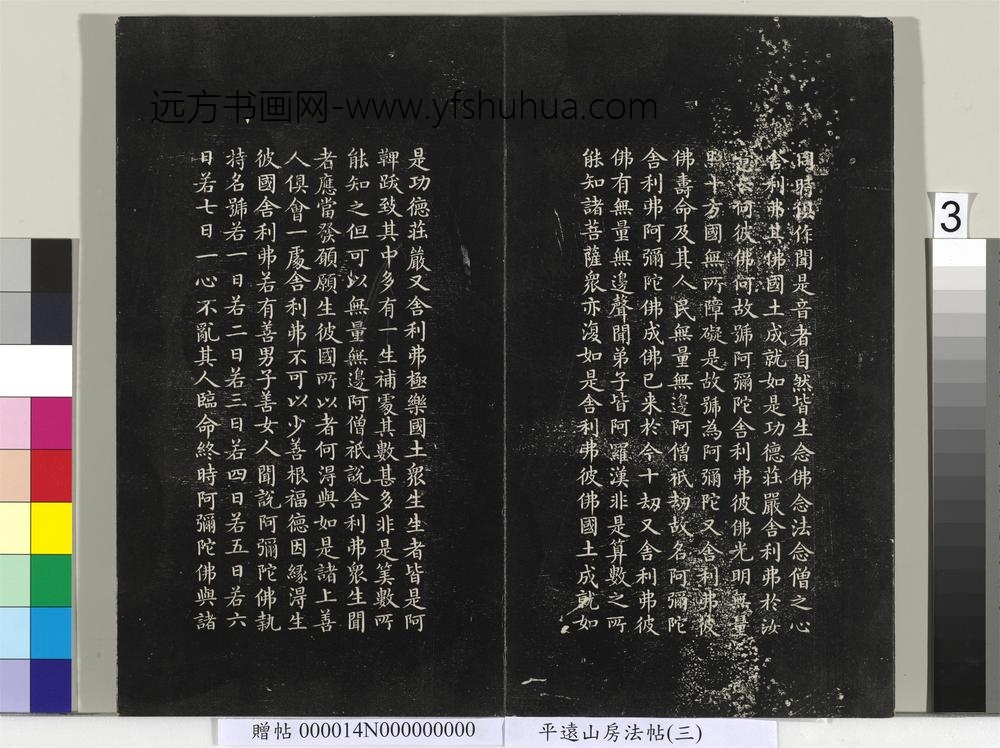 远方书画网-www.yfshuhua.com
同時俱作聞是音者自然皆生念佛念法念僧之心
舍利弗其佛國土成就如是功德莊嚴舍利弗於汝
意云何彼佛何故號阿彌陀舍利弗彼佛光明無量
照十方國無所障礙是故號為阿彌陀又舍利弗彼
佛壽命及其人民無量無邊阿僧祇劫故名阿彌陀
舍利弗阿彌陀佛成佛已来於今十劫又舍利弗彼
佛有無量無邊聲聞弟子皆阿羅漢非是算數之所
能知諸菩薩衆亦復如是舍利弗彼佛國土成就如
是功德莊嚴又舍利弗極樂國土衆生生者皆是阿
鞞跋致其中多有一生補處其數甚多非是筭數所
能知之但可以無量無邊阿僧祇說舍利弗衆生聞
者應當發願願生彼國所以者何得與如是諸上善
人俱會一處舍利弗不可以少善根福德因緣得生
彼國舍利弗若有善男子善女人聞說阿彌陀佛執
持名號若一日若二日若三日若四日若五日若六
日若七日一心不亂其人臨命終時阿彌陀佛與諸
3
贈帖 000014N000000000
平遠山房法帖(三)